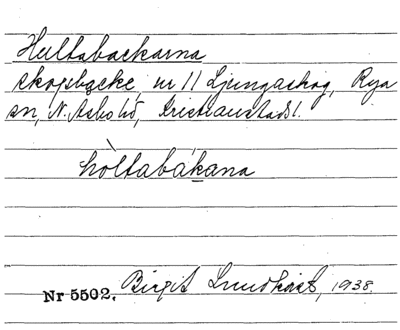 Hultabackarna
skogsbacke, nr 11 Ljungaskog, Rya
sn, N. Asbo hd, Kristianstads l.
hòltabákana
Nr 5502. Birgit Lundkvist, 1938.